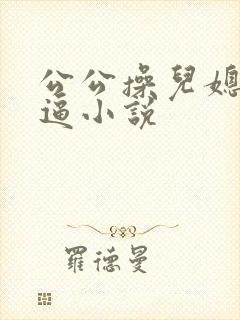 公公操兒媳
逼小説
羅德曼